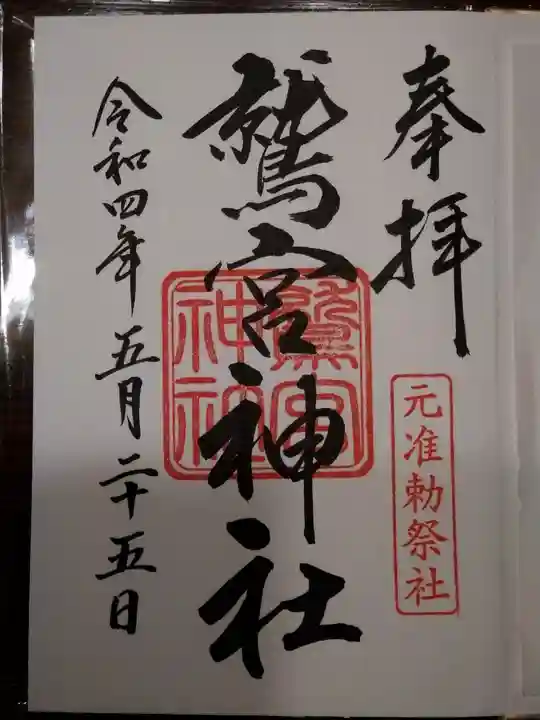 奉拝
元准勅祭社
鷲宮神社
鷲宮神社
令和四年五月二十五日